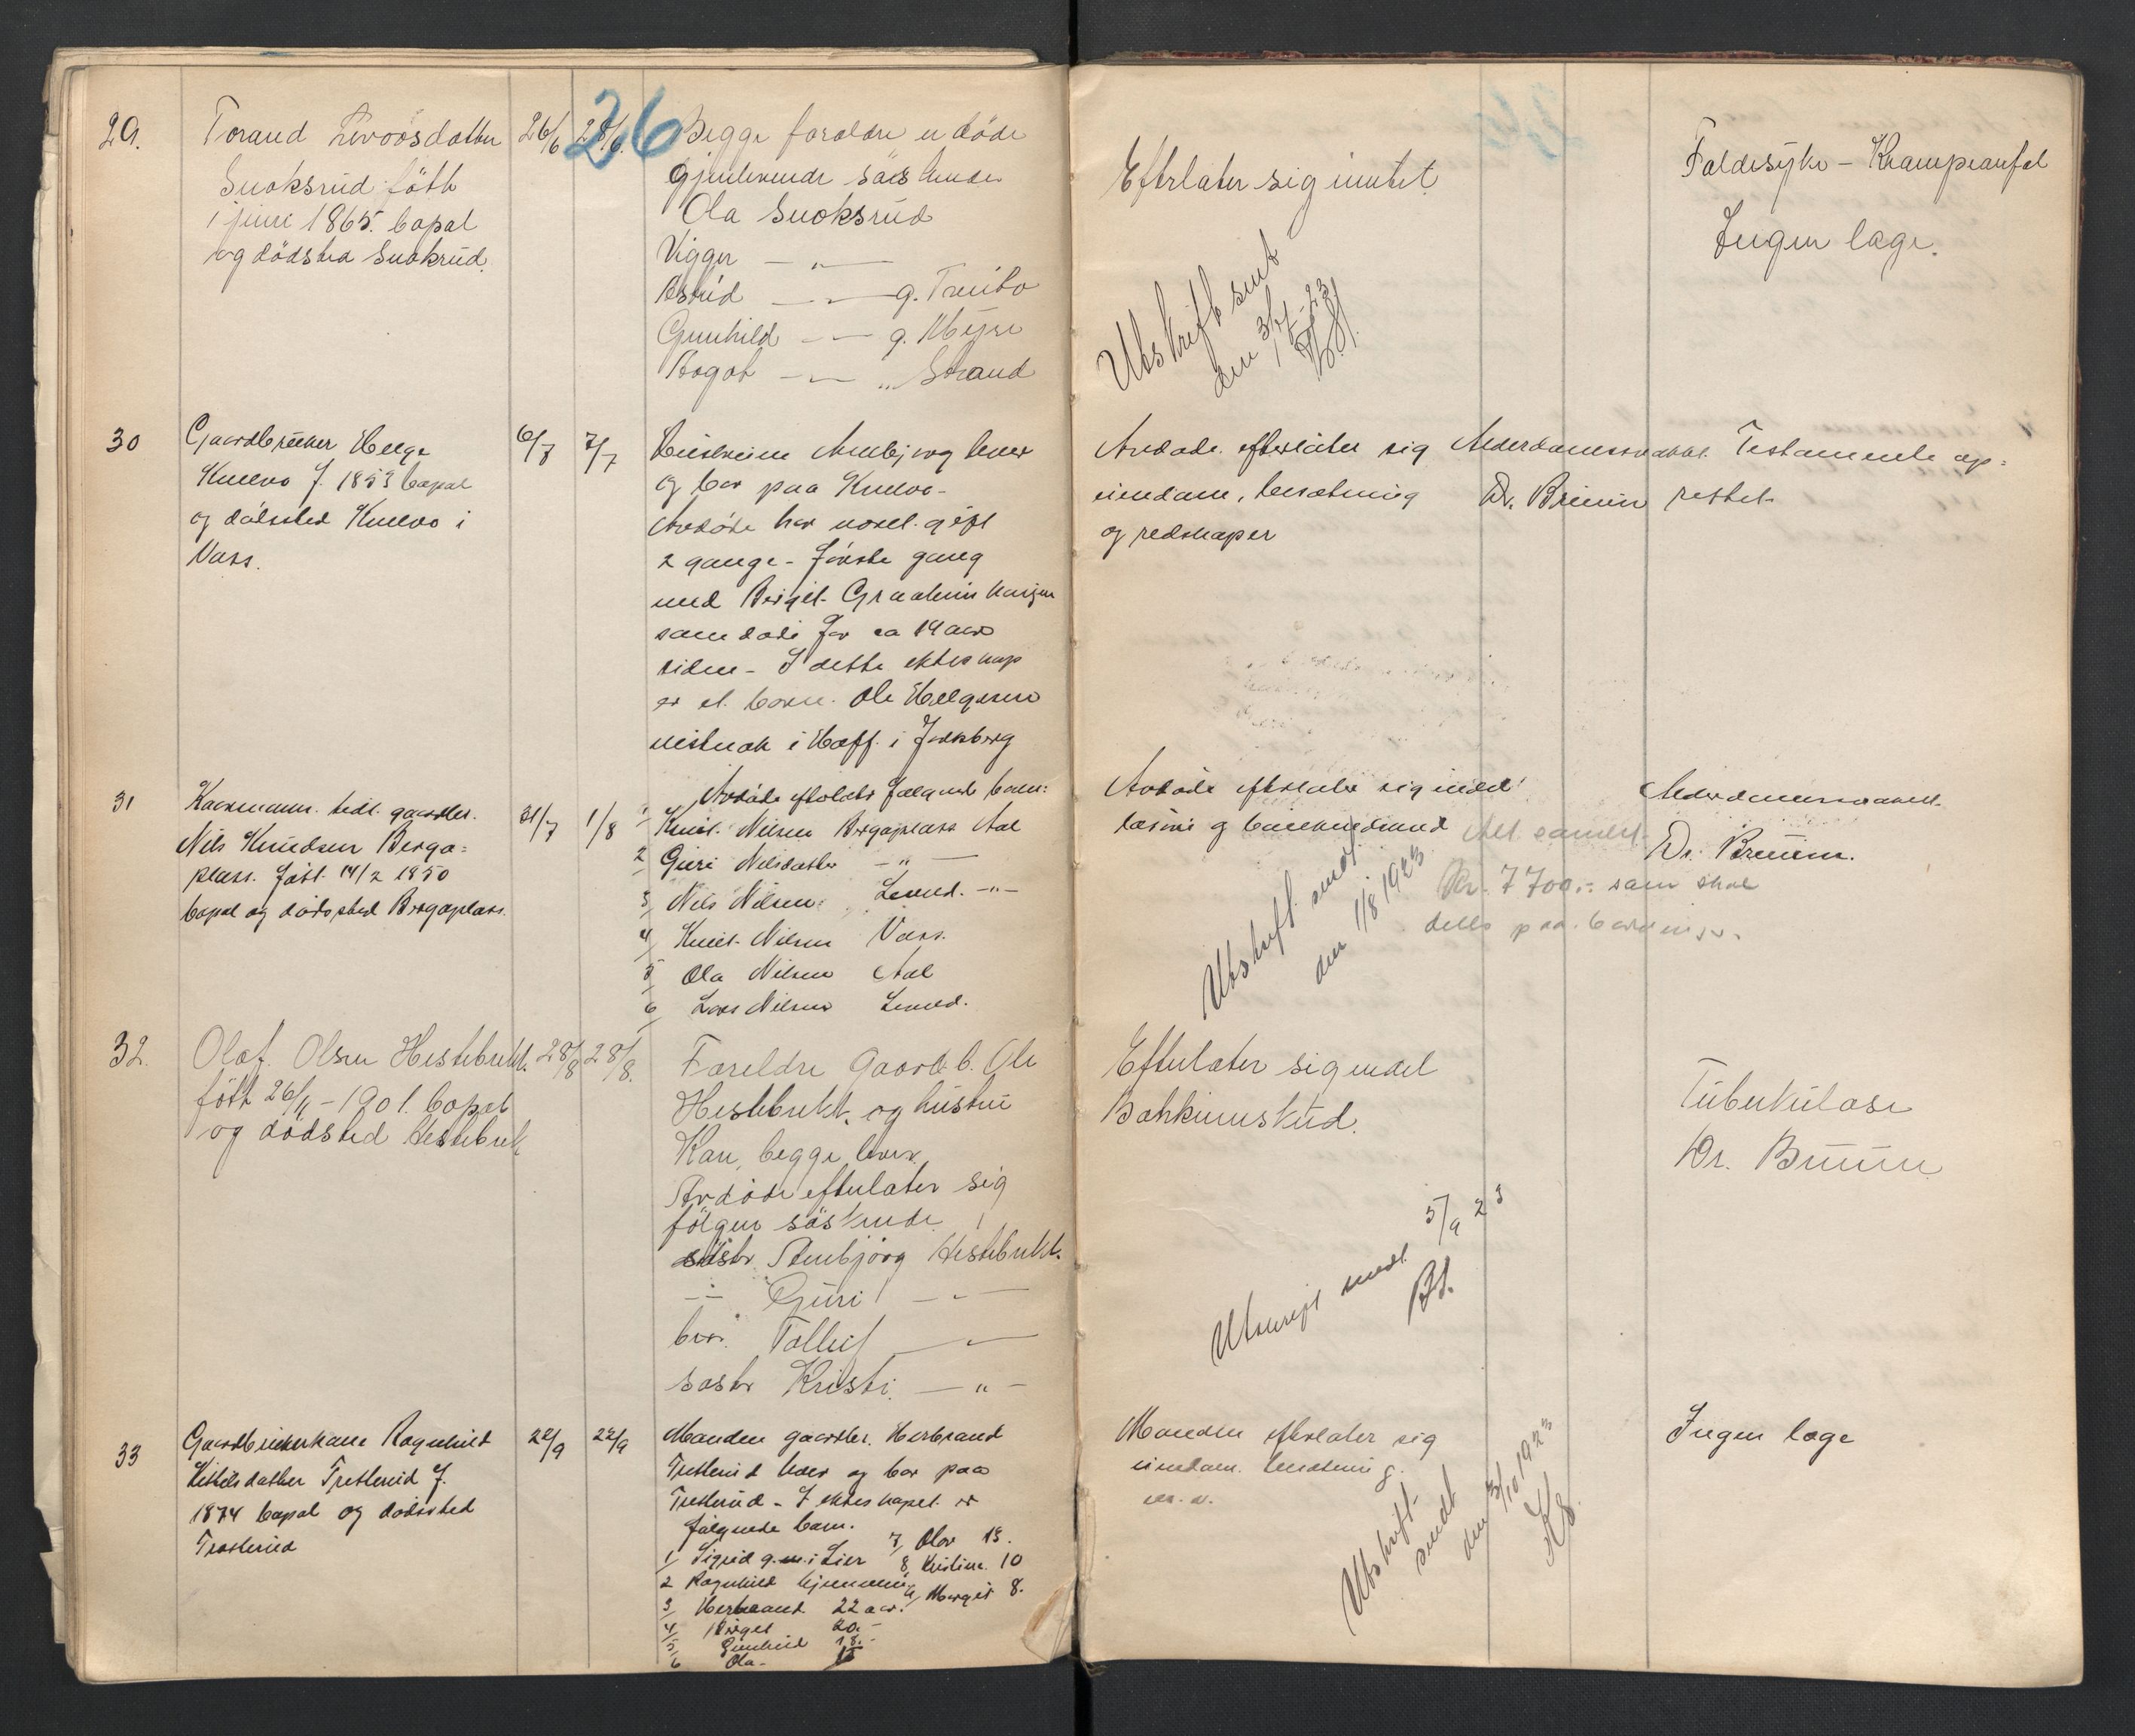 26
29.
Torand
Snoksrud född
i juni 1865. bopæl
og dödsted Snoksrud.
26/6
28/6.
Begge foraldre er döde
Gjenlevende söskende
Ola Snoksrud
Vigger — „ —
Astrid — „ — g. Truibo
Gunhild — „ — g. Myre
Aagot — „ — „ Strand
Efterlater sig intet
Utskrift sent
den 3/7-23
Faldesyke - Krampeanfal
Ingen læge.
30
Gaardbruker Helge
Knevo f. 1853 bopæl
og dödssted Knevo i
Vass.
6/7
7/7
Huskone Ambjørg lever
og bor paa Knevo.
Avdøde har været gift
2 gange - Første gang
med Birgit
som døde for ca 19 aar
siden - I dette ekteskap
er et barn. Ole Helgesen
i Hoff. i Jarlsberg
Avdøde efterlater sig
eiendom, besætning
og redskaper
Alderdomssvakhet
Dr. Bruun
Testamente op=
rettet
31
Kaarmann tidl. gaardbr.
Nils Knudsen Berga=
plass. Født 14/2 1850
bopæl og dødssted Bergaplass.
31/7
1/8
Avdøde efterlater følgende barn:
1 Knut Nilsen Bergaplass Aal
2 Guri Nilsdatter — „ —
3 Nils Nilsen Lened. — „ —
4 Knut Nilsen Vass.
5 Ola Nilsen Aal
6 Lars Nilsen Lened.
Avdøde efterlater sig endel
løsøre og bankindskud Alt samlet
Kr. 7700.- som skal
deles paa barnene.
Utskrift sendt
den 1/8 1923
Alderdomssvakhet
Dr. Bruun.
32.
Olaf Olsen Hestebrekk.
født 26/4 - 1901. bopæl
og dödsted Hestebrekk
28/8
28/8.
Foreldre Gaardb. Ole
Hestebrekk. og hustru
Kari, begge lever.
Avdöde efterlater sig
fölgen söskende
söster Ambjörg Hestebrekk.
— „ — Guri — „ —
bror. Tolleif — „ —
söster Kristi. — „ —
Efterlater sig endel
Bankinnskud.
Utskrift sendt 5/9 23
BS.
Tuberkulose
Dr. Bruun
33
Gaardbrukerkone Ragnhild
Kittilsdatter Trøsterud f.
1874 bopæl og dødssted
Trøsterud
22/9
22/9
Manden gaardbr. Herbrand
Trøsterud lever og bor paa
Trøsterud - I ekteskapet er
følgende barn.
1 Sigrid g. i Lier
2 Ragnhild hjemme
3 Herbrand 22 aar.
4 Birgit 20.-
5 Gunhild 18.-
6 Ola-
7 Olav 13.
8 Kristine 10
9 Margit 8.
Manden efterlater sig
eiendom. besætning.
m. v.
Utskrift
sendt
den 3/10 1923
KS.
Ingen læge